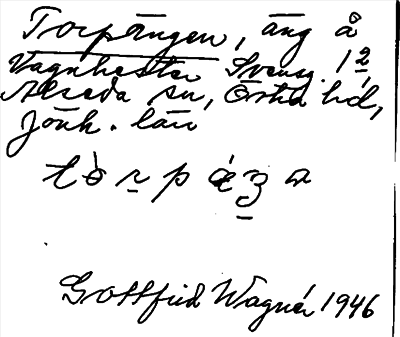 Torpängen, äng å
Vagnhester Svensg. 1²,
Alseda sn, Östra hd,
Jönk. län
tòrpáʒa
Gottfrid Wagnér 1946